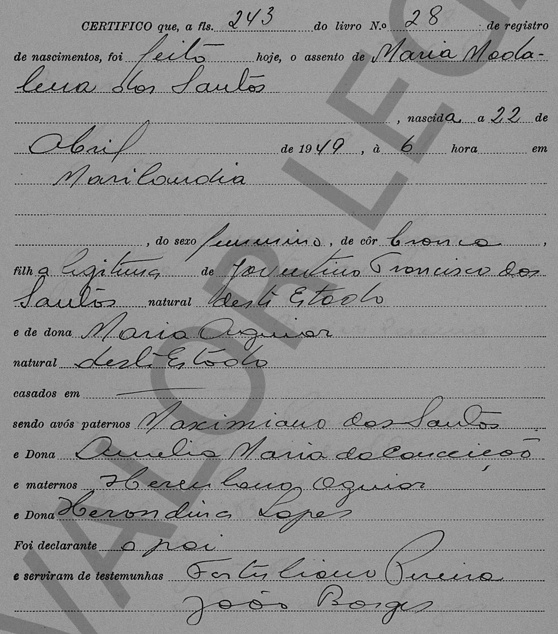 CERTIFICO que, a fls. 243 do livro N.º 28 de registro
de nascimentos, foi feito hoje, o assento de Maria Mada-
lena dos Santos
, nascida a 22 de
Abril de 1949, à 6 hora em
Marilandia
, do sexo feminino, de côr branca,
filha legitima de Joventino Francisco dos
Santos natural deste Estado
e de dona Maria Aguiar
natural deste Estado
casados em
sendo avós paternos Maximiano dos Santos
e Dona Amelia Maria da Conceição
e maternos Herculano Aguiar
e Dona Herondina Lopes
Foi declarante o pai
e serviram de testemunhas Fortuliano Pereira
João Borges
VALOR LEGAL